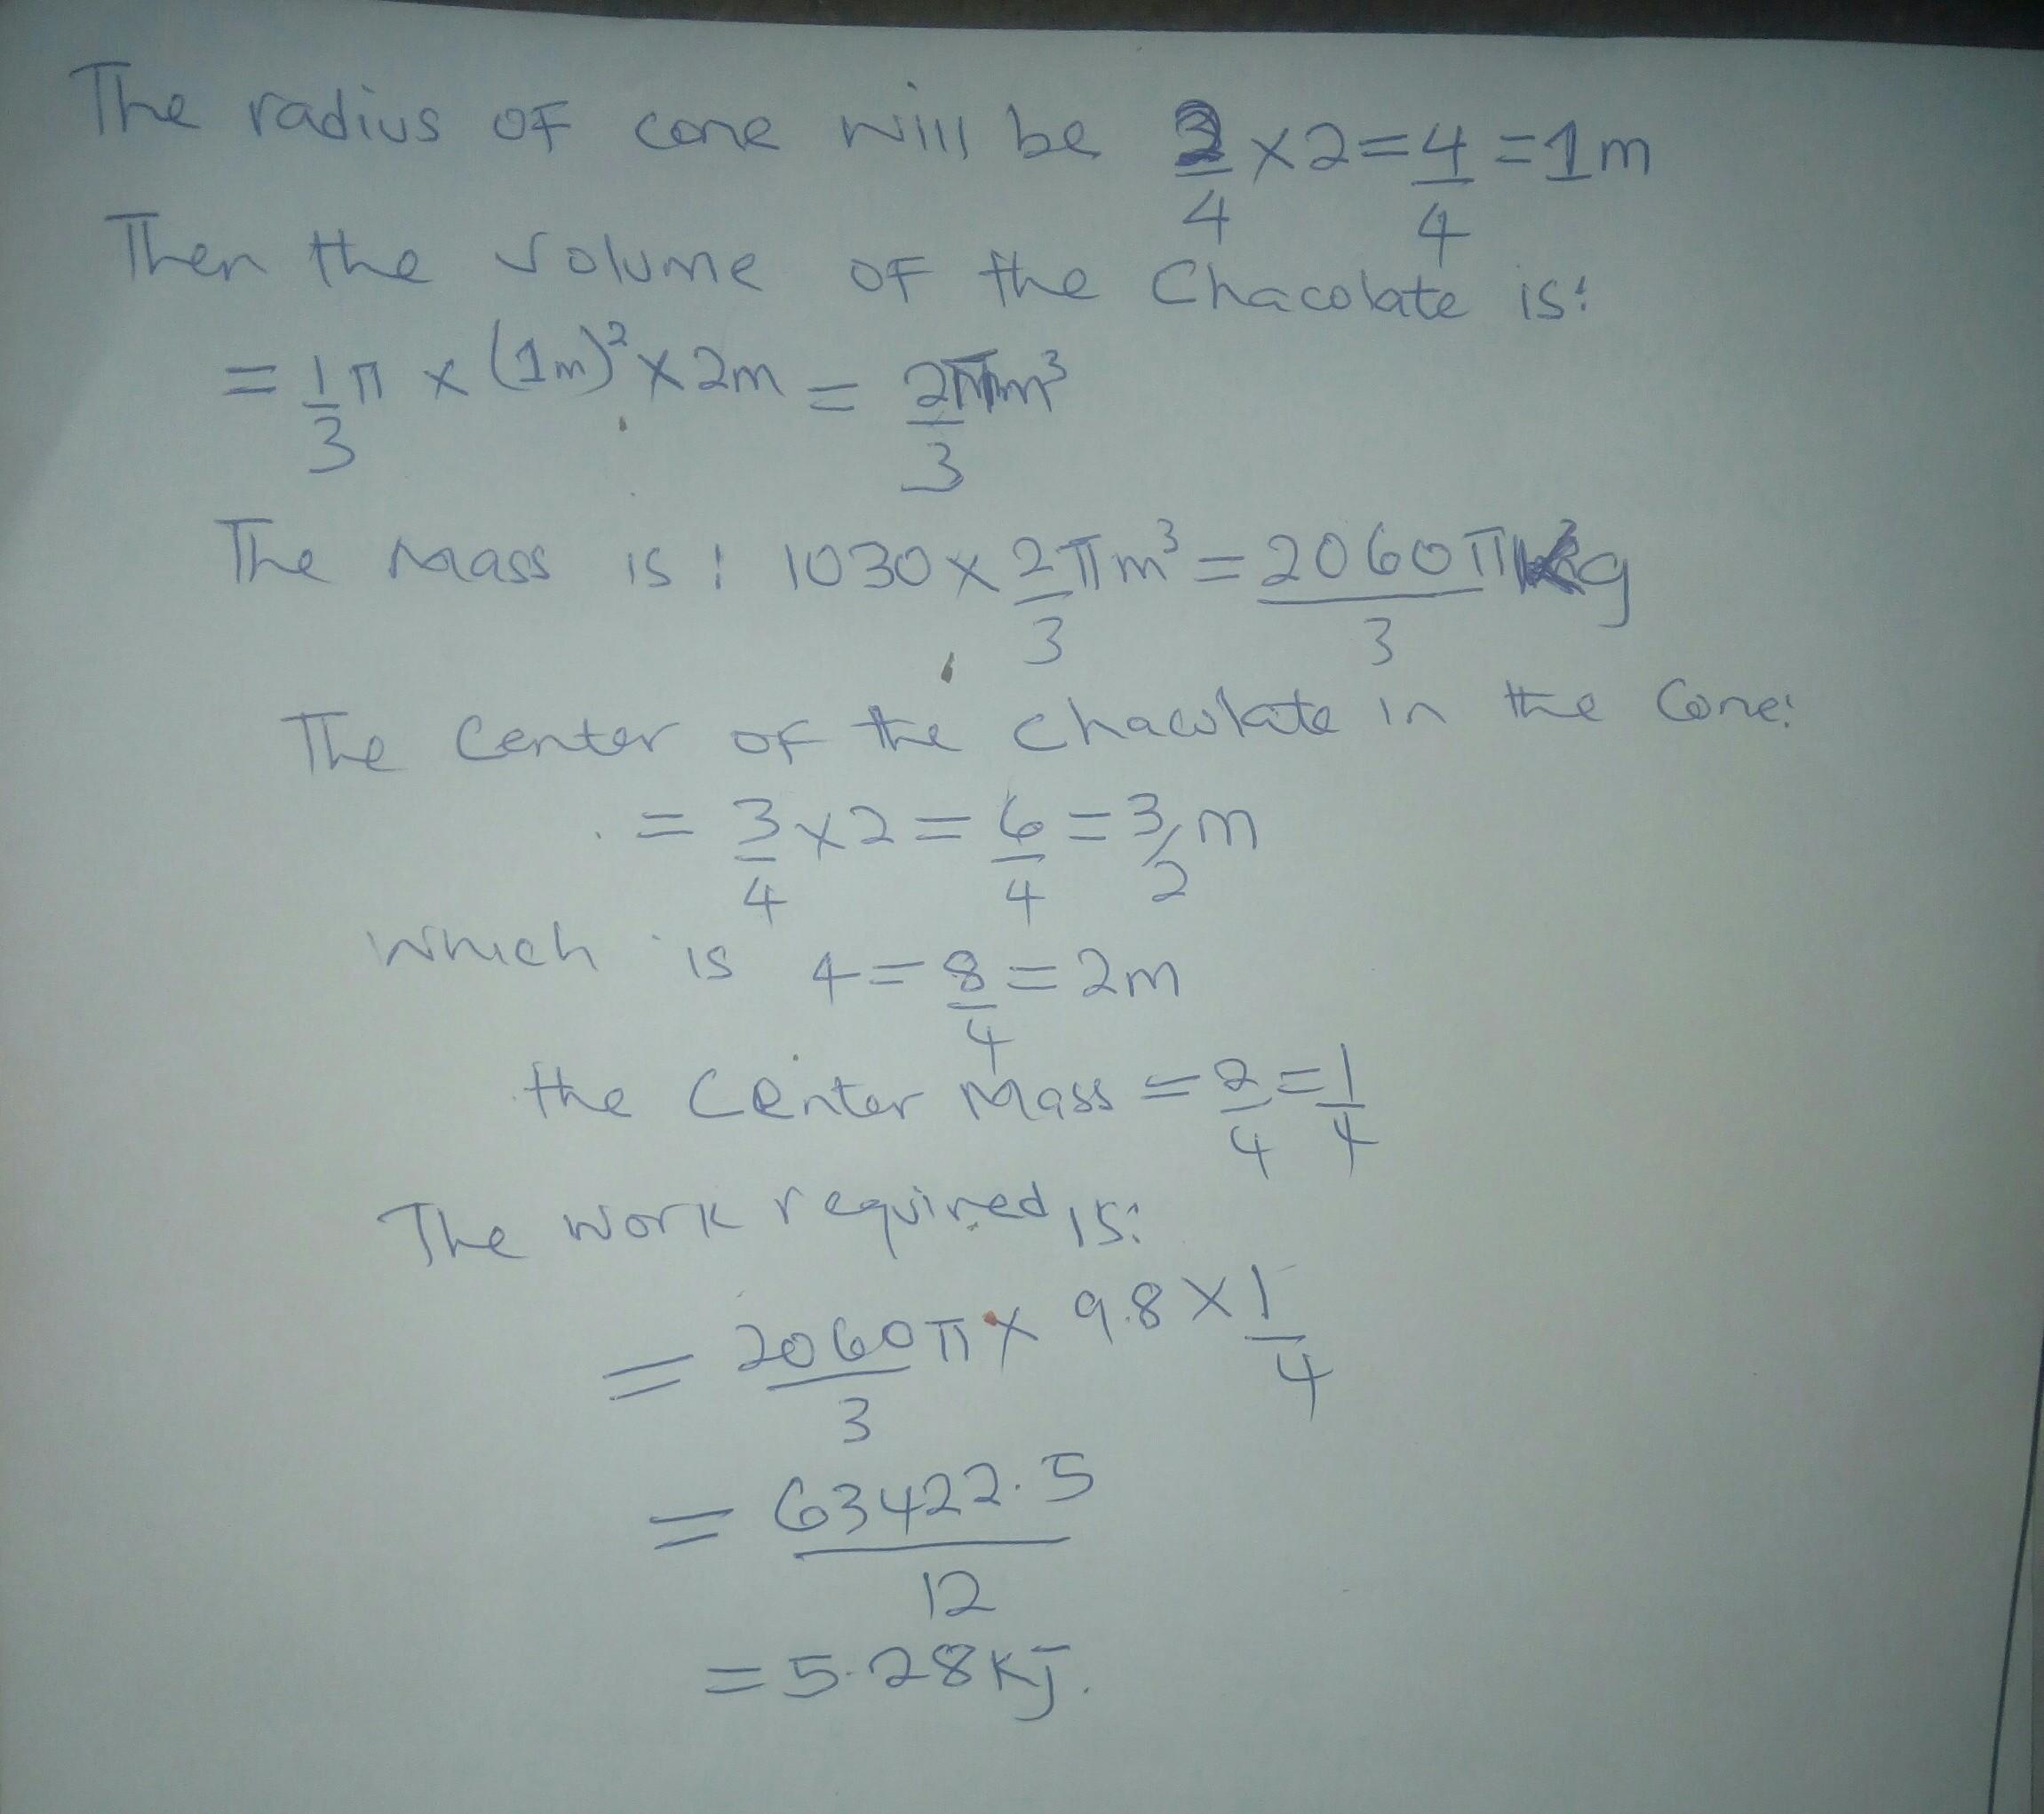 The radius of cone will be 2/4 x 2 = 4/4 = 1m
Then the volume of the Chacolate is:
= 1/3 π x (1m)² x 2m = 2πm³/3
The Mass is : 1030 x 2πm³/3 = 2060π kg/3
The Center of the chacolate in the Cone:
= 3/4 x 2 = 6/4 = 3/2 m
Which is 4 = 8/4 = 2m
the Center Mass = 2/4 = 1/4
The work required is:
= 2060π/3 x 9.8 x 1/4
= 63422.5/12
= 5.28KJ.